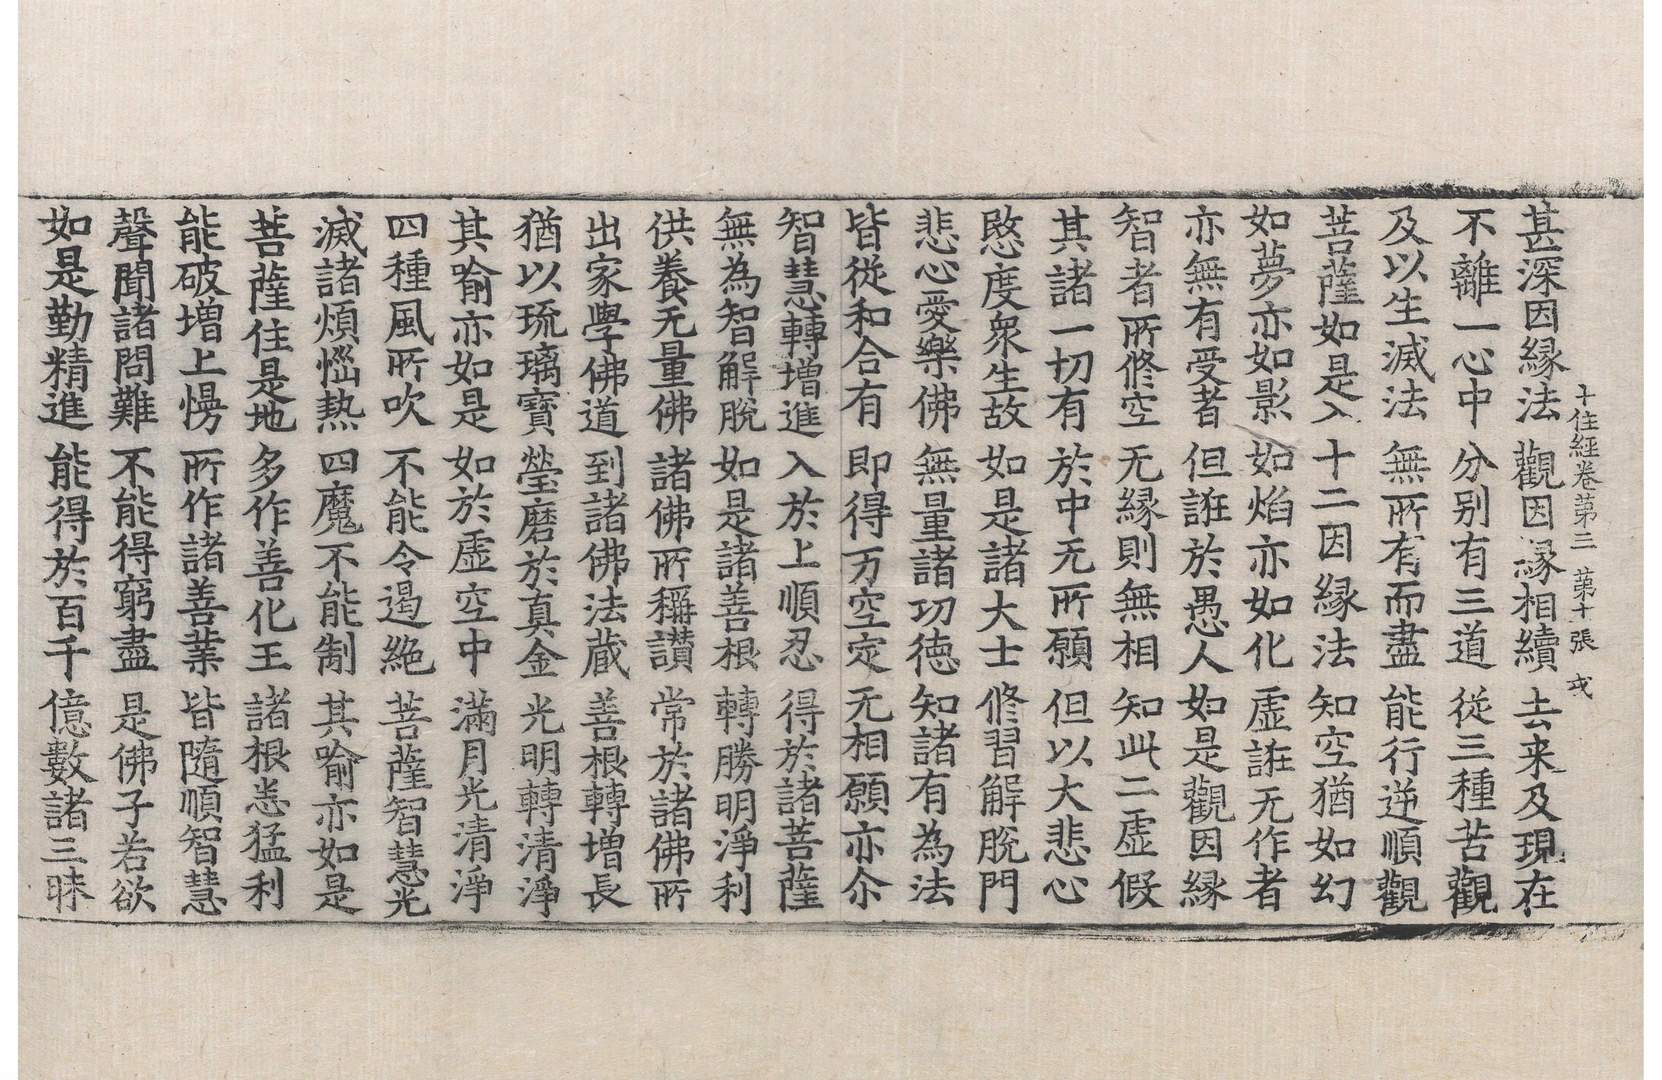 十住經卷第三　第十張　戎
甚深因縁法　觀因縁相續　去来及現在
不離一心中　分别有三道　從三種苦觀
及以生滅法　無所有而盡　能行逆順觀
菩薩如是入　十二因縁法　知空猶如幻
如夢亦如影　如焰亦如化　虛誑无作者
亦無有受者　但誑於愚人　如是觀因縁
智者所修空　无縁則無相　知此二虛假
其諸一切有　於中无所願　但以大悲心
愍度衆生故　如是諸大士　修習解脫門
悲心愛樂佛　無量諸功徳　知諸有為法
皆從和合有　即得万空定　无相願亦尒
智慧轉增進　入於上順忍　得於諸菩薩
無為智解脫　如是諸善根　轉勝明淨利
供養无量佛　諸佛所稱讃　常於諸佛所
出家學佛道　到諸佛法蔵　善根轉增長
猶以琉璃寶　瑩磨於真金　光明轉清淨
其喻亦如是　如於虛空中　滿月光清淨
四種風所吹　不能令遏絶　菩薩智慧光
滅諸煩惱熱　四魔不能制　其喻亦如是
菩薩住是地　多作善化王　諸根悉猛利
能破增上慢　所作諸善業　皆隨順智慧
聲聞諸問難　不能得窮盡　是佛子若欲
如是勤精進　能得於百千　億數諸三昧